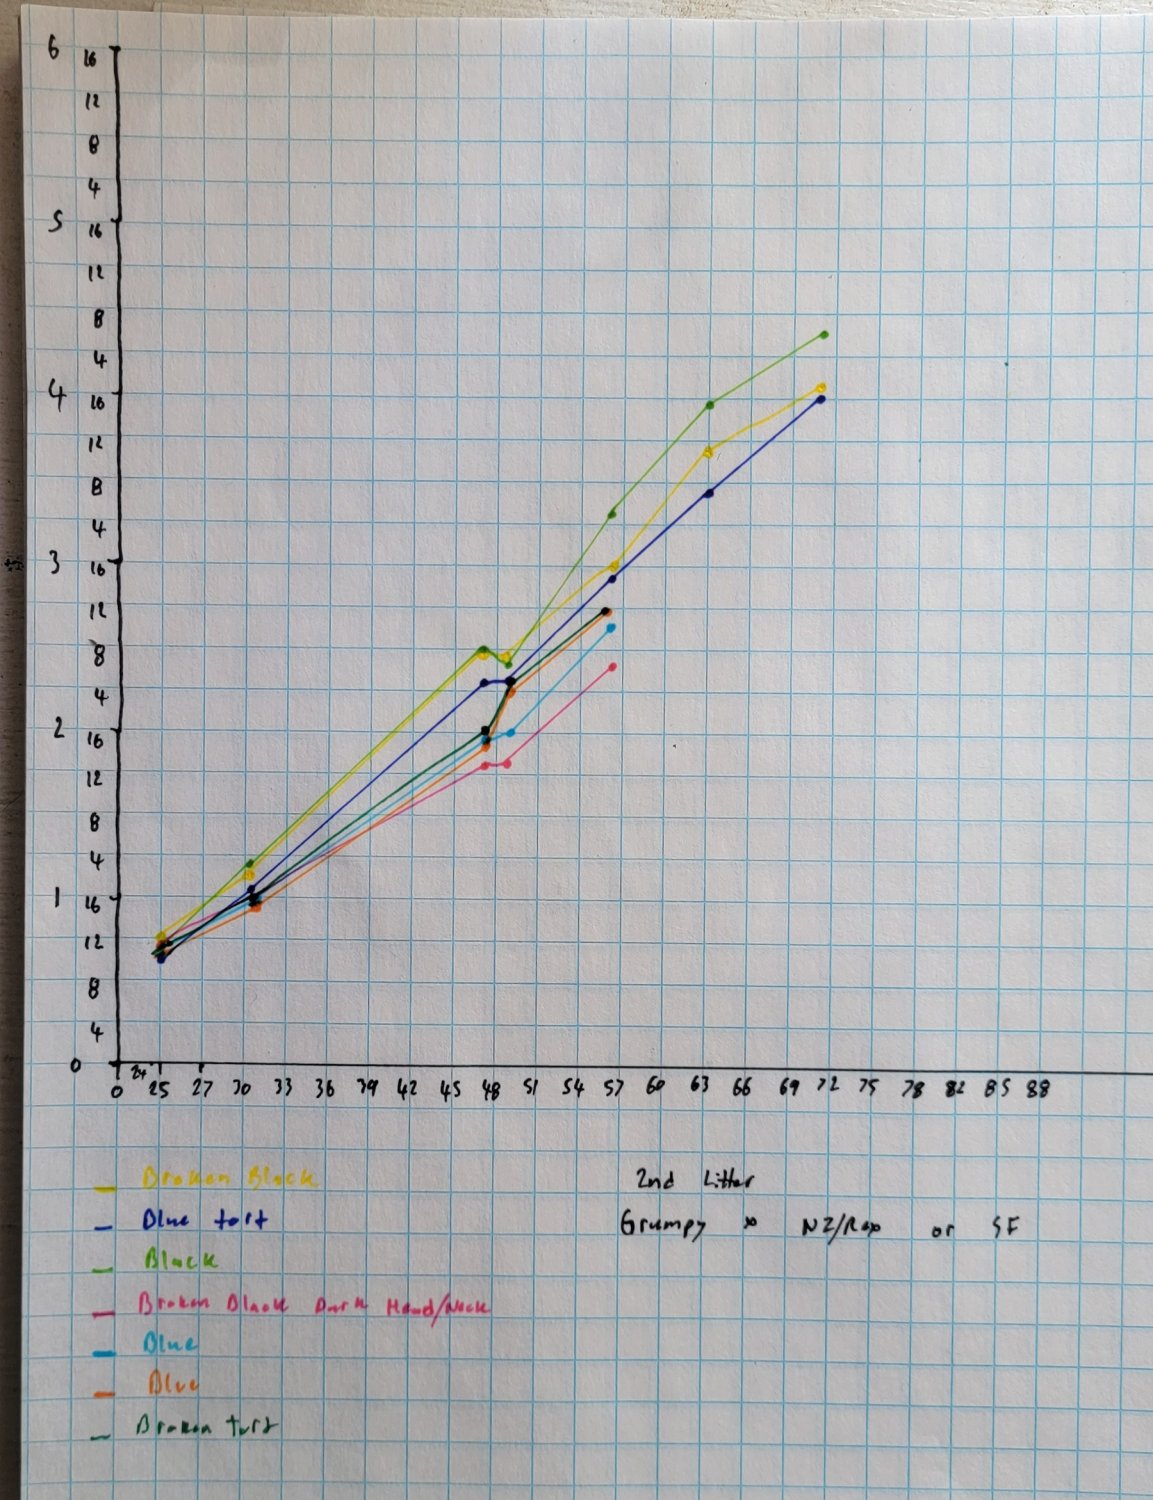 6 16
12
8
4
5 16
12
8
4
4 16
12
8
4
3 16
12
8
4
2 16
12
8
4
1 16
12
8
4
0
0 24 25 27 30 33 36 39 42 45 48 51 54 57 60 63 66 69 72 75 78 82 85 88
Broken Black
Blue tort
Black
Broken Black Dark Head/Neck
Blue
Blue
Broken tort
2nd Litter
Grumpy x NZ/Rex or SF